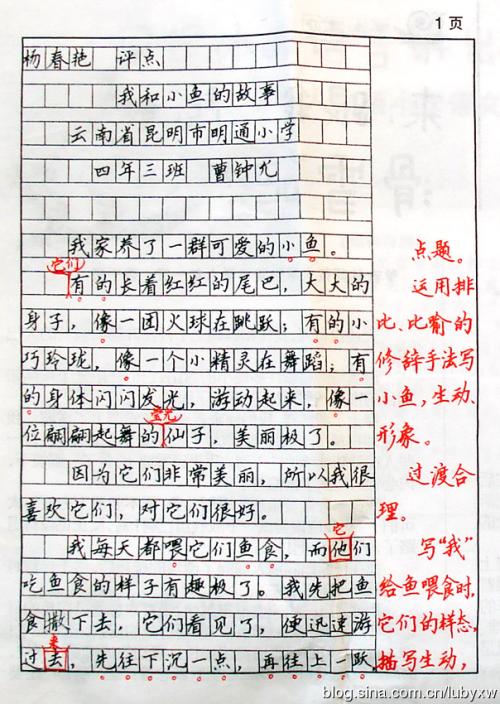 1页
杨春艳 评点
我和小鱼的故事
云南省昆明市明通小学
四年三班 曹钟尤
我家养了一群可爱的小鱼。
点题。
它们
有的长着红红的尾巴，大大的
身子，像一团火球在跳跃；有的小
巧玲珑，像一个小精灵在舞蹈；有
的身体闪闪发光，游动起来，像一
莹光
位翩翩起舞的仙子，美丽极了。
运用排
比、比喻的
修辞手法写
小鱼，生动、
形象。
因为它们非常美丽，所以我很
喜欢它们，对它们很好。
过渡合
理。
它
我每天都喂它们鱼食，而他们
吃鱼食的样子有趣极了。我先把鱼
食撒下去，它们看见了，便迅速游
来
过去，先往下沉一点，再往上一跃，
写“我”
给鱼喂食时，
它们的样态，
描写生动，
blog.sina.com.cn/lubyxw